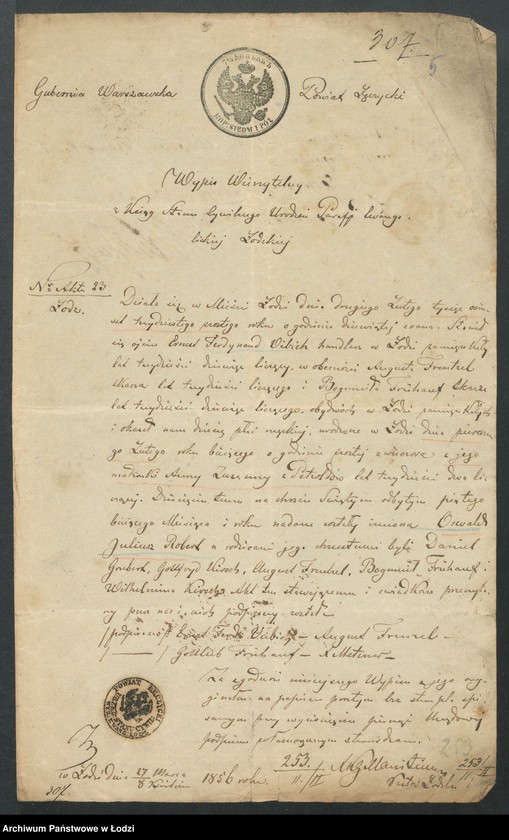 307.
5
7½ КОПѢЕКЪ
KOP: SIEDM I PÓŁ
Gubernia Warszawska Powiat Łęczycki
Wypis Wierzytelny
z Ksiąg Stanu Cywilnego Urodzeń Parafji Ewange-
lickiej Łódzkiej
Nr Aktu 23
Łódź.
Działo się w Mieście Łodzi dnia drugiego Lutego tysiąc ośm-
set trzydziestego szóstego roku o godzinie dziewiątej zrana. Stawił
się ojciec Ernest Ferdynand handlarz w Łodzi zamieszkały
lat trzydzieści dziewięć liczący, w obecności Augusta Frenzel
lat trzydzieści liczącego i Bogumiła Frühauf
lat trzydzieści dziewięć liczącego, obydwóch w Łodzi zamieszkałych
i okazał nam dziecię płci męskiej, urodzone w Łodzi dnia pierwsze-
go Lutego roku bieżącego o godzinie szóstej z jego
małżonki Anny Zuzanny z lat trzydzieści dwa li-
czącej. Dziecięciu temu na chrzcie Świętym odbytym piątego
bieżącego Miesiąca i roku nadane zostały imiona Oswald
Juliusz Robert a rodzicami jego chrzestnemi byli Daniel
Grubert, Gottfryd Kirsch, August Frenzel, Bogumił Frühauf i
Wilhelmina Akt ten stawającemu i świadkom przeczyta-
ny przez nas podpisany został
/podpisano/ Ernst Ferd. – August Frenzel –
/ — / Gottlieb Frühauf – K. Metzner –
Za zgodność niniejszego Wypisu z jego ory-
ginałem na papierze prostym bez stempla spi-
sanym przy wyciśnięciu pieczęci Urzędowej
podpisem własnoręcznym stwierdzam.
POWIAT ŁĘCZYCKI
w Łodzi dnia 27 Marca / 8 Kwietnia 1856 roku.
253. / II. /II
253
307.